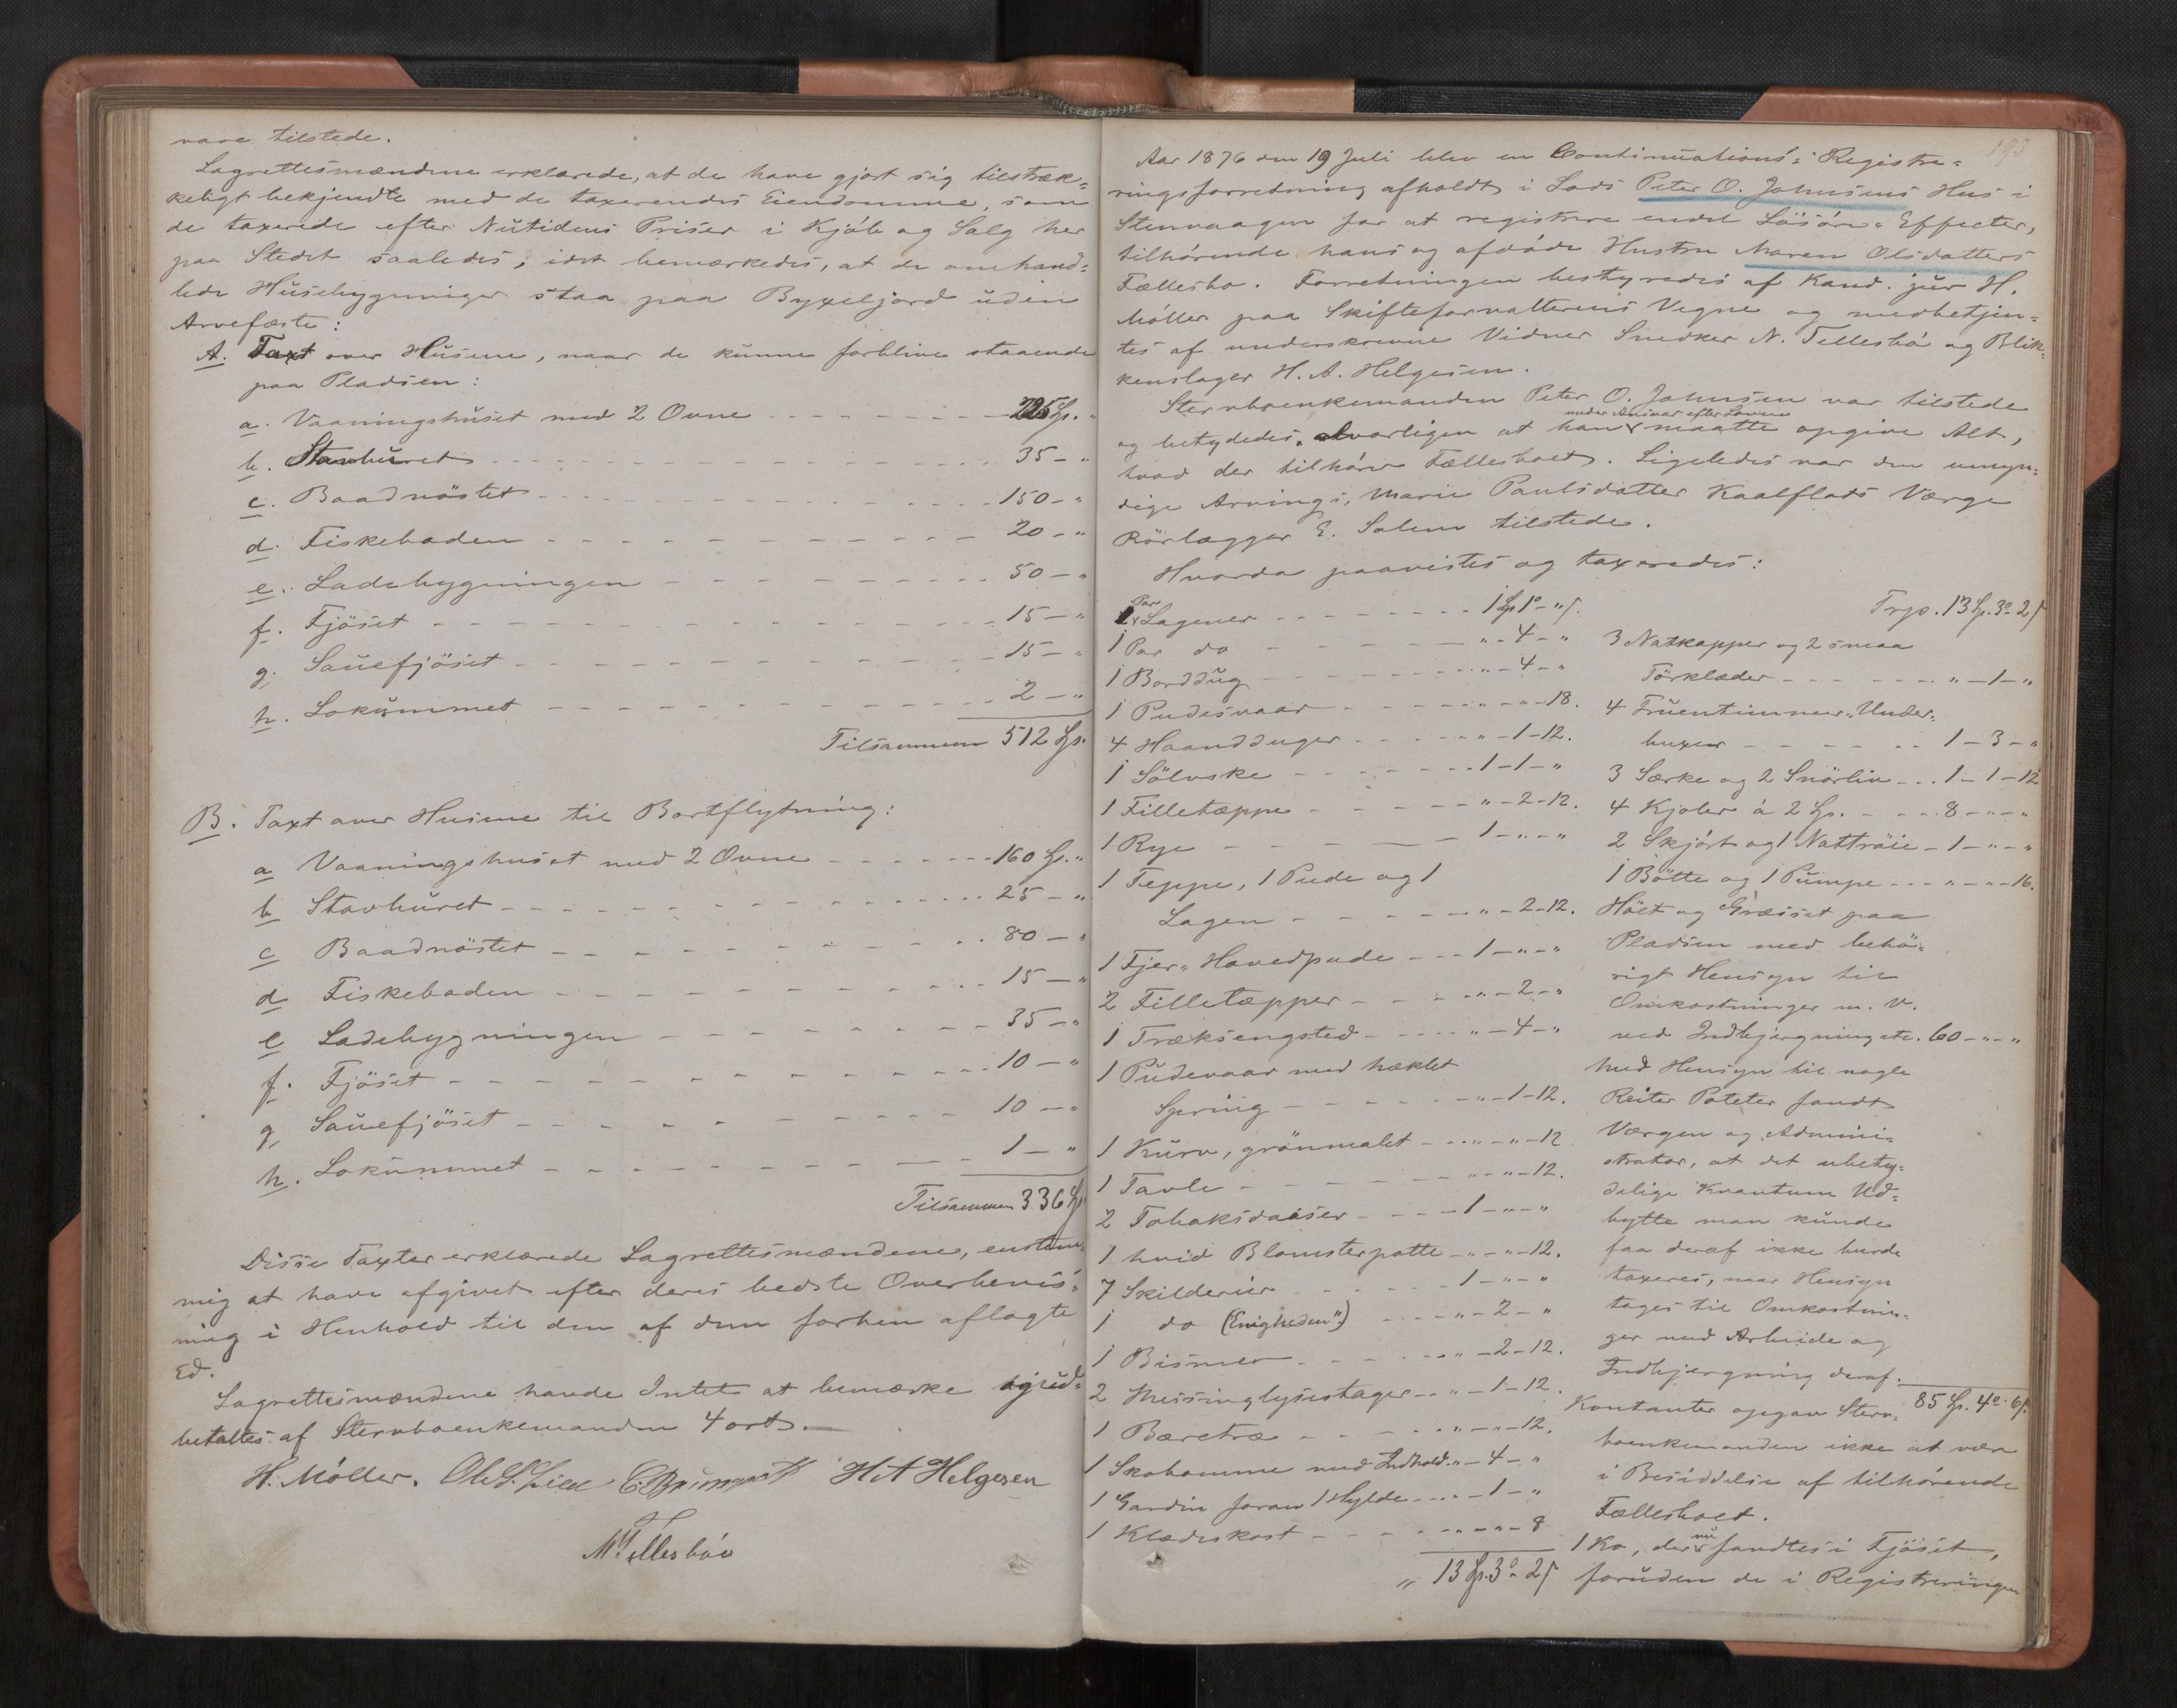 vare tilstede.
Lagrettesmændene erklærede, at de have gjort sig tilstræk-
keligt bekjendte med de taxerendes Eiendomme, som
de taxerede efter Nutidens Priser i Kjøb og Salg her
paa Stedet saaledes, idet bemærkedes, at de omhand-
lede Husebygninger staa paa Byxeljord uden
Arvefæste:
A. Taxt over Husene, naar de kunne forblive staaende
paa Pladsen:
a. Vaaningshuset med 2 Ovne - - - 225 Sp. "
b. Stavburet - - - 35 - "
c. Baadnöstet - - - 150 - "
d. Fiskeboden - - - 20 - "
e. Ladebygningen - - - 50 - "
f. Fjöset - - - 15 - "
g. Sauefjöset - - - 15 - "
h. Lokummet - - - 2 - "
Tilsammen 512 Sp.
B. Taxt over Husene til Bortflytning:
a Vaaningshuset med 2 Ovne - - - 160 Sp. "
b Stavburet - - - 25 - "
c Baadnöstet - - - 80 - "
d Fiskeboden - - - 15 - "
e Ladebygningen - - - 35 - "
f. Fjöset - - - 10 - "
g, Sauefjöset - - - 10 - "
h. Lokummet - - - 1 - "
Tilsammen 336 Sp
Disse Taxter erklærede Lagrettesmændene, enstem-
mig at have afgivet efter deres bedste Overbevis-
ning i Henhold til den af dem forhen aflagte
Ed.
Lagrettesmændene havde Intet at bemærke
betaltes af Stervboenkemanden 4 ort.
H. Möller. H A Helgesen
N Tellesböe
193
Aar 1876 den 19 Juli blev en Continuations-Registre-
ringsforretning afholdt i Lods Peter O. Johnsens Hus i
Stenvaagen for at registrere endel Lösöre-Effecter,
tilhörende hans og afdöde Hustru Maren Olsdatters
Fællesbo. Forretningen bestyredes af Kand. jur H.
Möller paa Skifteforvalterens Vegne og medbetjen-
tes af underskrevne Vidner Snedker N. Tellesbö og Blik-
kenslager H. A. Helgesen.
Stervboenkemanden Peter O. Johnsen var tilstede
og betydedes alvorligen at han under Ansvar efter Loven maatte opgive Alt,
hvad der tilhörer Fællesboet. Ligeledes var den umyn-
dige Arvings, Marie Paulsdatter Kaalflots Værge
Rörlægger E. Solem tilstede.
Hvorda paavistes og taxeredes:
1 Par Lagener - - - 1 Sp 1o - " s.
1 Par do - - - " - 4 - "
1 Borddug - - - " - 4 - "
1 Pudesvaar - - - " - " - 18.
4 Haandduger - - - " - 1 - 12.
1 Sölvske - - - 1 - 1 - "
1 Filletæppe - - - " - 2 - 12.
1 Rye - - - 1 - " - "
1 Teppe, 1 Pude og 1
Lagen - - - " - 2 - 12.
1 Fjer-Hovedpude - - - 1 - " - "
2 Filletæpper - - - " - 2 - "
1 Træksengsted - - - " - 4 - "
1 Pudevaar med hæklet
Spring - - - " - 1 - 12.
1 Kurv, grönmalet - - - " - " - 12
1 Tavle - - - " - " - 12.
2 Tobaksdaaser - - - 1 - " - "
1 hvid Blomsterpotte - " - " - 12.
7 Skilderier - - - 1 - " - "
1 do ("Enigheden") - - - " - 2 - "
1 Bismer - - - " - 2 - 12.
2 Messinglysestager - - " - 1 - 12.
1 Bæretræ - - - " - " - 12.
1 Skokomme med Indhold " - 4 - "
1 Gardin foran 1 Hylde - - - 1 - "
1 Klædeskost - - - " - " - 8
" 13 Sp. 3o - 2 s
Trsp. 13 Sp. 3o 2 s
3 Natkapper og 2 smaa
Törklæder - - - " - 1 - "
4 Fruentimmer-Under-
buxer - - - 1 - 3 - "
3 Særke og 2 Snörliv - - 1 - 1 - 12
4 Kjoler à 2 Sp. - - - 8 - " - "
2 Skjört og 1 Nattröie - 1 - " - "
1 Bötte og 1 Pumpe - - - " - " - 16.
Höet og Græsset paa
Pladsen med behö-
rigt Hensyn til
Omkostninger m. v.
ved Indbjergning etc. 60 - " - "
Med Hensyn til nogle
Reiter Poteter fandt
Værgen og Admini-
strator, at det ubety-
delige Kvantum Ud-
bytte man kunde
faa deraf ikke burde
taxeres, naar Hensyn
tages til Omkostnin-
ger med Arbeide og
Indbjergning deraf.
85 Sp. 4o. 6 s.
Kontanter opgav Sterv-
boenkemanden ikke at være
i Besiddelse af tilhörende
Fællesboet.
1 Ko, der nu fandtes i Fjöset,
foruden de i Registreringen